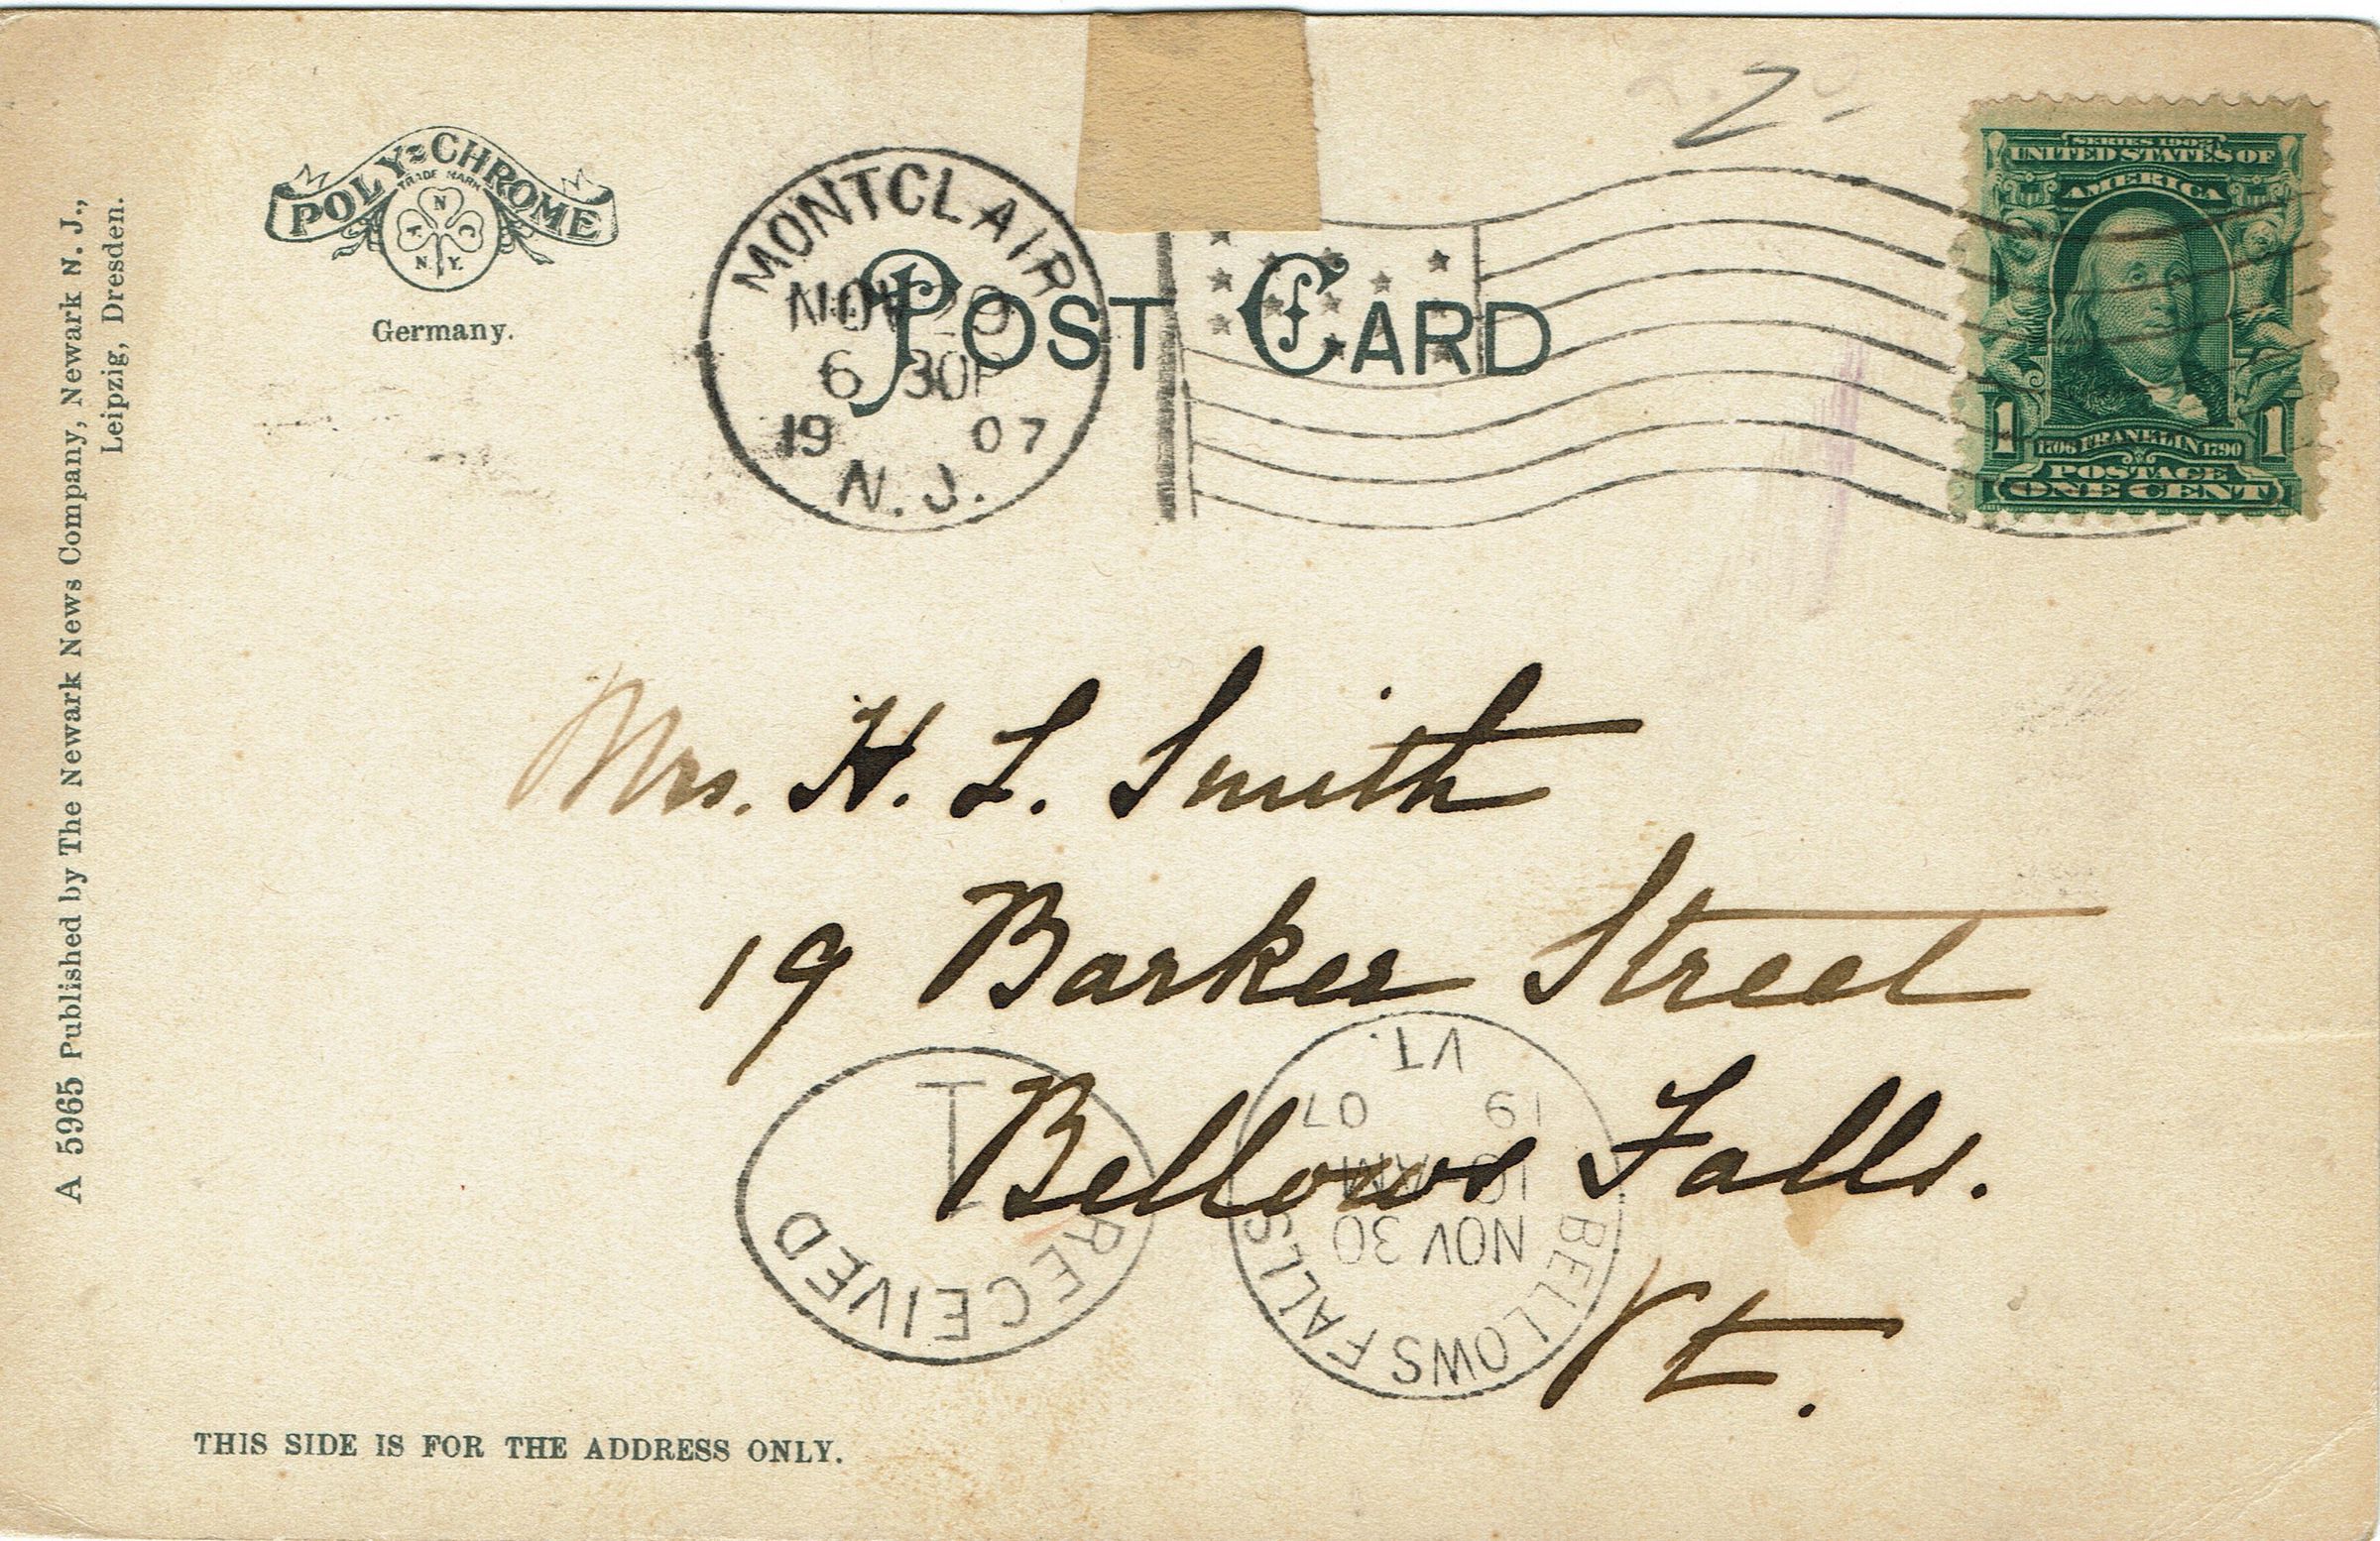 POLY-CHROME
TRADE MARK
N
A C
N.Y.
Germany.
A 5965 Published by The Newark News Company, Newark N. J.,
Leipzig, Dresden.
MONTCLAIR
NOV
6 30P
19 07
N. J.
POST CARD
2.
SERIES 1902
UNITED STATES OF
AMERICA
1 1
1706 FRANKLIN 1790
POSTAGE
ONE CENT
Mrs. H. L. Smith
19 Barker Street
Bellows Falls.
Vt.
RECEIVED
1
BELLOWS FALLS
NOV 30
10 AM
19 07
VT.
THIS SIDE IS FOR THE ADDRESS ONLY.